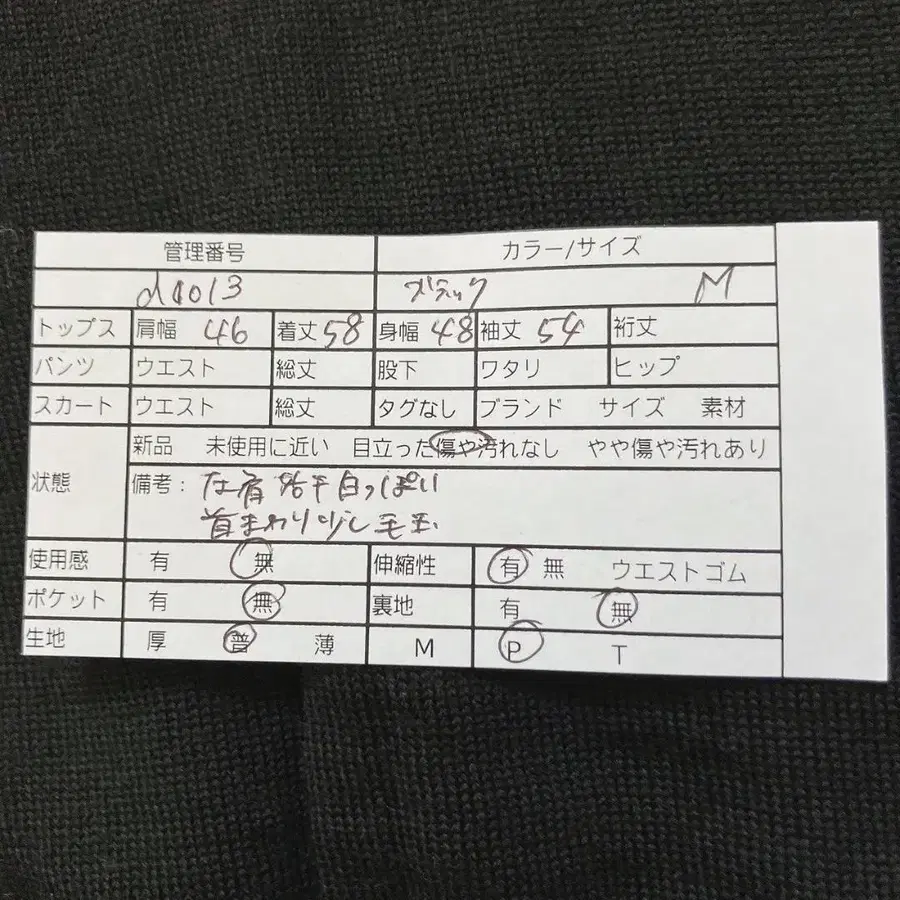 管理番号 カラー/サイズ
d0013 ブラック M
トップス 肩幅 46 着丈 58 身幅 48 袖丈 54 裄丈
パンツ ウエスト 総丈 股下 ワタリ ヒップ
スカート ウエスト 総丈 タグなし ブランド サイズ 素材
状態 新品 未使用に近い 目立った傷や汚れなし やや傷や汚れあり
備考: 左肩 若干白っぽい
首まわり少し毛玉
使用感 有 無 伸縮性 有 無 ウエストゴム
ポケット 有 無 裏地 有 無
生地 厚 普 薄 M P T